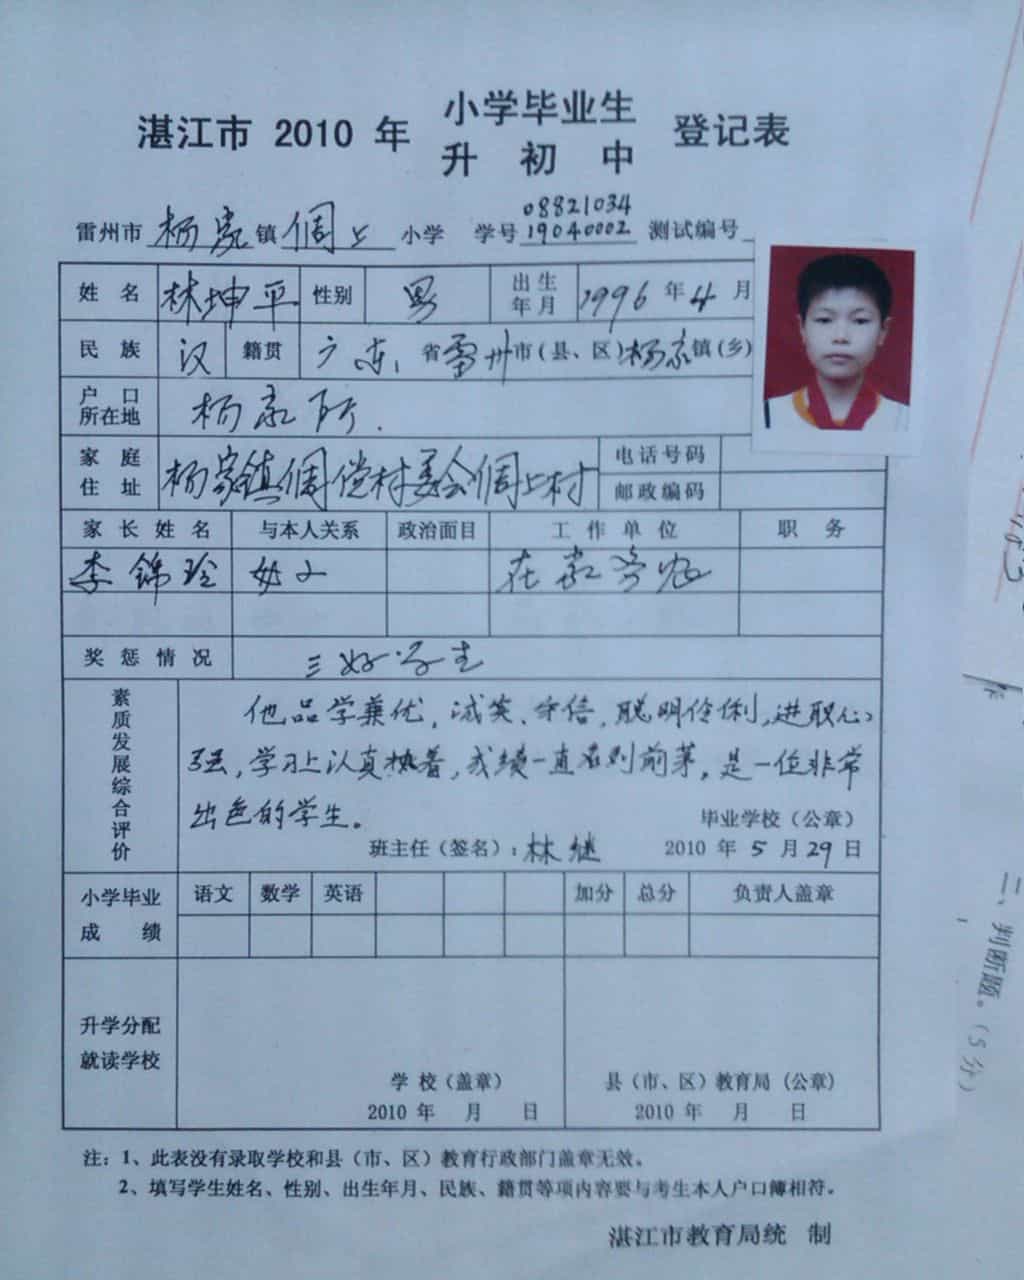 湛江市 2010 年 小学毕业生 登记表
升 初 中
08821034
雷州市 杨家 镇 倜上 小学 学号 19040002 测试编号
姓 名 林坤平 性别 男 出生年月 1996 年 4 月
民 族 汉 籍贯 广东 省 雷州 市(县、区) 杨家 镇(乡)
户 口
所在地 杨家所.
家 庭
住 址 杨家镇倜偿村委会倜上村 电话号码
邮政编码
家 长 姓 名 与本人关系 政治面目 工 作 单 位 职 务
李锦玲 在家务农
奖 惩 情 况 三好学生
素质发展综合评价
他品学兼优,诚实、守信,聪明伶俐,进取心
强,学习上认真执着,成绩一直名列前茅,是一位非常
出色的学生。
毕业学校(公章)
班主任(签名):林继 2010 年 5 月 29 日
小学毕业
成 绩
语文 数学 英语 加分 总分 负责人盖章
升学分配
就读学校
学 校(盖章) 县(市、区)教育局(公章)
2010 年 月 日 2010 年 月 日
注:1、此表没有录取学校和县(市、区)教育行政部门盖章无效。
2、填写学生姓名、性别、出生年月、民族、籍贯等项内容要与考生本人户口簿相符。
湛江市教育局统 制
二、判断题。(5分)